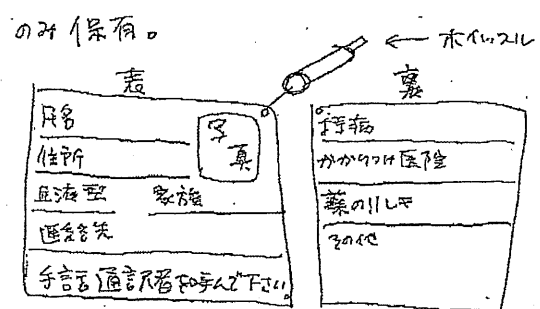 のみ保有。
ホイッスル
表
裏
氏名
写真
住所
血液型 家族
連絡先
手話通訳者を呼んで下さい。
持病
かかりつけ医院
薬の
その他